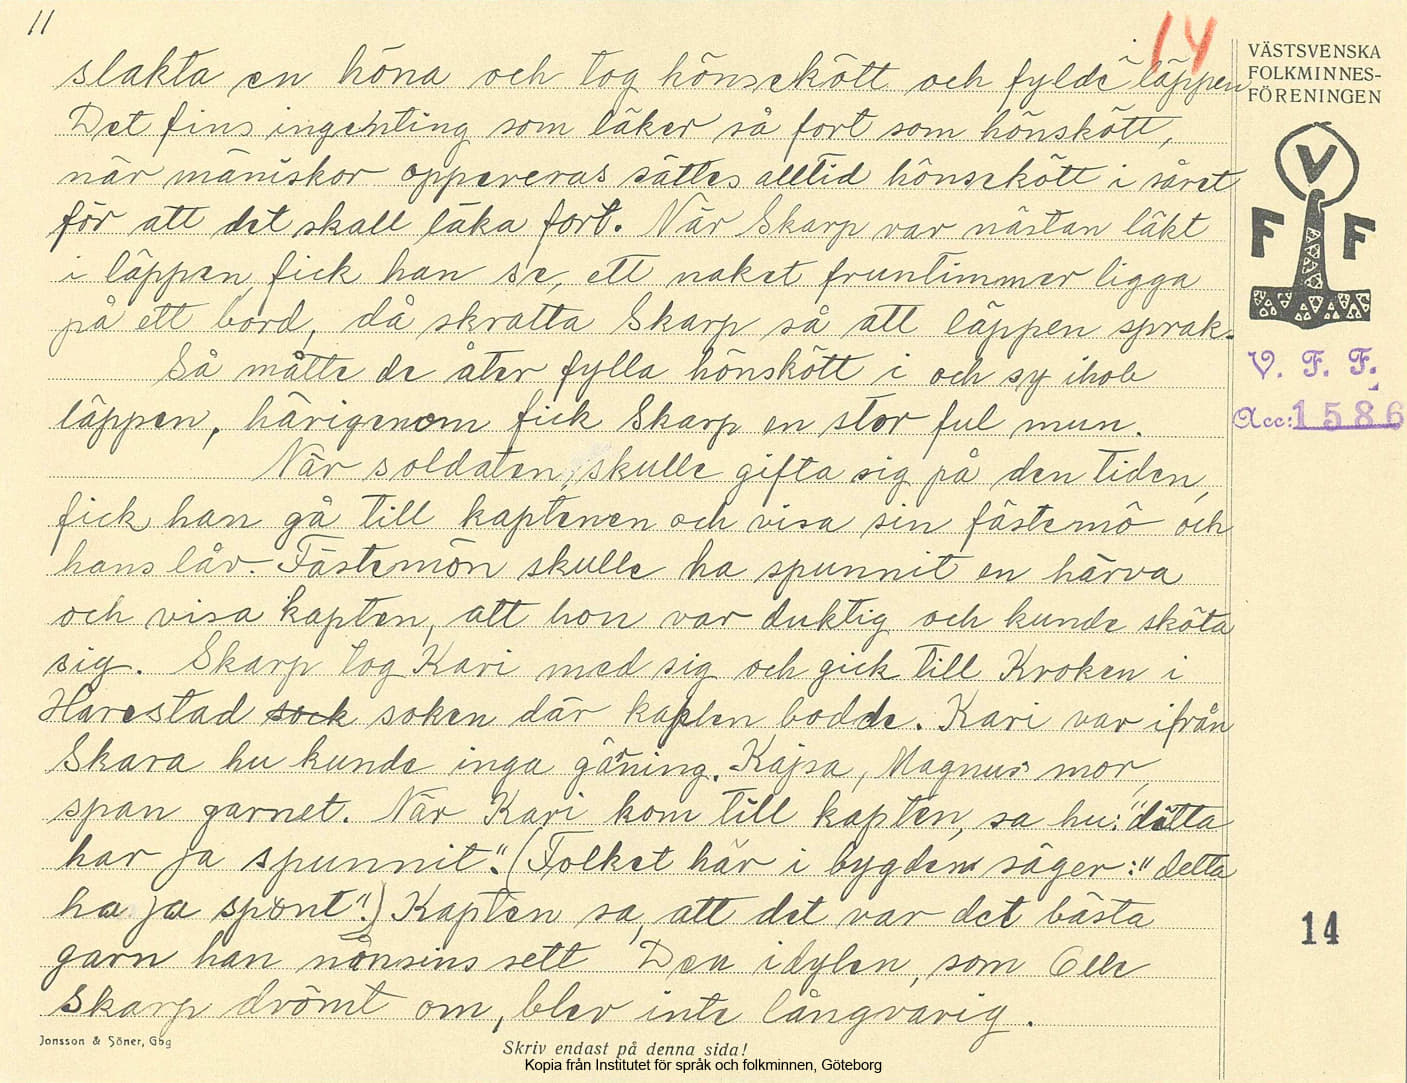 11
14
slakta en höna och tog hönsekött och fylde i läppen
Det fins ingenting som läker så fort som hönskött,
när mäniskor oppereras sättes alltid hönsekött i såret
för att det skall läka fort. När Skarp var nästan läkt
i läppen fick han se, ett naket fruntimmer ligga
på ett bord, då skratta Skarp så att läppen sprak.
Så måtte de åter fylla hönskött i och sy ihob
läppen, härigenom fick Skarp en stor ful mun.
När soldaten skulle gifta sig på den tiden,
fick han gå till kaptenen och visa sin fästemö och
hans låv. Fästemön skulle ha spunnit en härva
och visa kapten, att hon var duktig och kunde sköta
sig. Skarp tog Kari med sig och gick till Kroken i
Harestad sock soken där kapten bodde. Kari var ifrån
Skara hu kunde inga gärning. Kajsa, Magnus mor,
span garnet. När Kari kom till kapten, sa hu: "ditta
har ja spunnit". (Folket här i bygden säger: "detta
ha ja spont".) Kapten sa, att det var det bästa
garn han nånsins sett Den idylen, som Olle
Skarp drömt om, blev inte långvarig.
VÄSTSVENSKA
FOLKMINNES-
FÖRENINGEN
V
F F
V. F. F.
Acc: 1586
14
Jonsson & Söner, Gbg
Skriv endast på denna sida!
Kopia från Institutet för språk och folkminnen, Göteborg